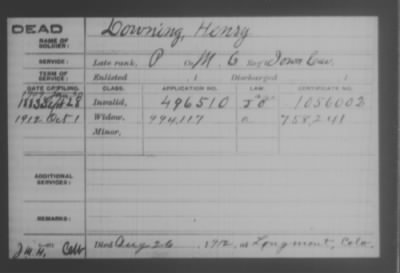 DEAD
NAME OF SOLDIER: Downing, Henry
SERVICE: Late rank, P Co. M, 6 Reg't Iowa Cav.
TERM OF SERVICE: Enlisted , 1 Discharged , 1
DATE OF FILING. CLASS. APPLICATION NO. LAW. CERTIFICATE NO.
Invalid, 496510 1056002
1912 Oct 1 Widow, 994,117 758,241
Minor,
ADDITIONAL SERVICES:
REMARKS:
Died Aug 26, 1912, at Longmont, Colo.